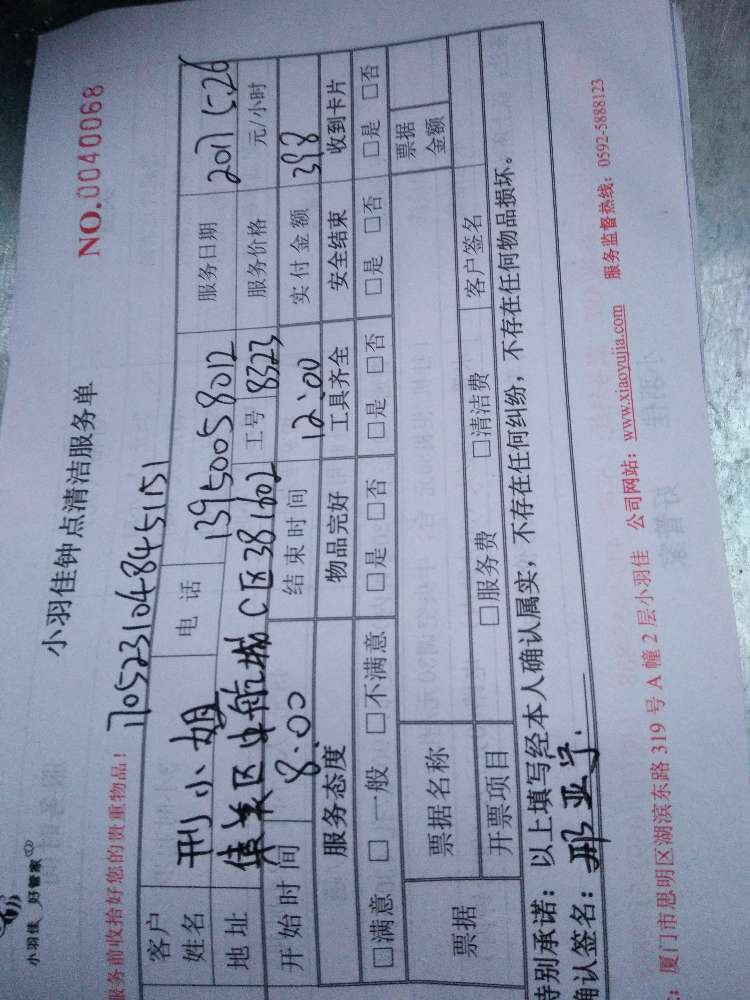 小羽佳 好管家
小羽佳钟点清洁服务单
NO.0040068
服务前收拾好您的贵重物品!
1705231048451151
客户姓名 刑小姐 电话 13950058012 服务日期 2017 5.26
地址 集美区中航城C区381602 工号 8323 服务价格 元/小时
开始时间 8:00 结束时间 12:00 实付金额 398
服务态度 物品完好 工具齐全 安全结束 收到卡片
□满意 □一般 □不满意 □是 □否 □是 □否 □是 □否 □是 □否
票据 票据名称 票据金额
开票项目 □服务费 □清洁费 客户签名
特别承诺:以上填写经本人确认属实,不存在任何纠纷,不存在任何物品损坏。
确认签名:邢亚
:厦门市思明区湖滨东路319号A幢2层小羽佳 公司网站:www.xiaoyujia.com 服务监督热线:0592-5888123